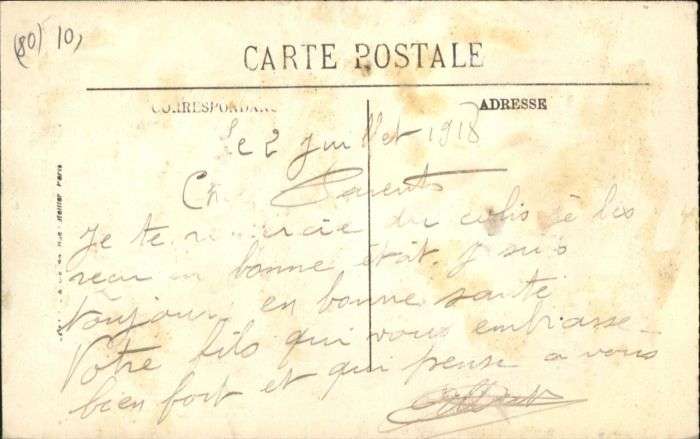 (80) 10,
CARTE POSTALE
CORRESPONDANC
ADRESSE
Le 2 Juillet 1918
Ch Parents
Je te remercie du colis je les
reçu en bonne état. Je suis
toujours en bonne santé
Votre fils qui vous embrasse
bien fort et qui pense a vous
Paris